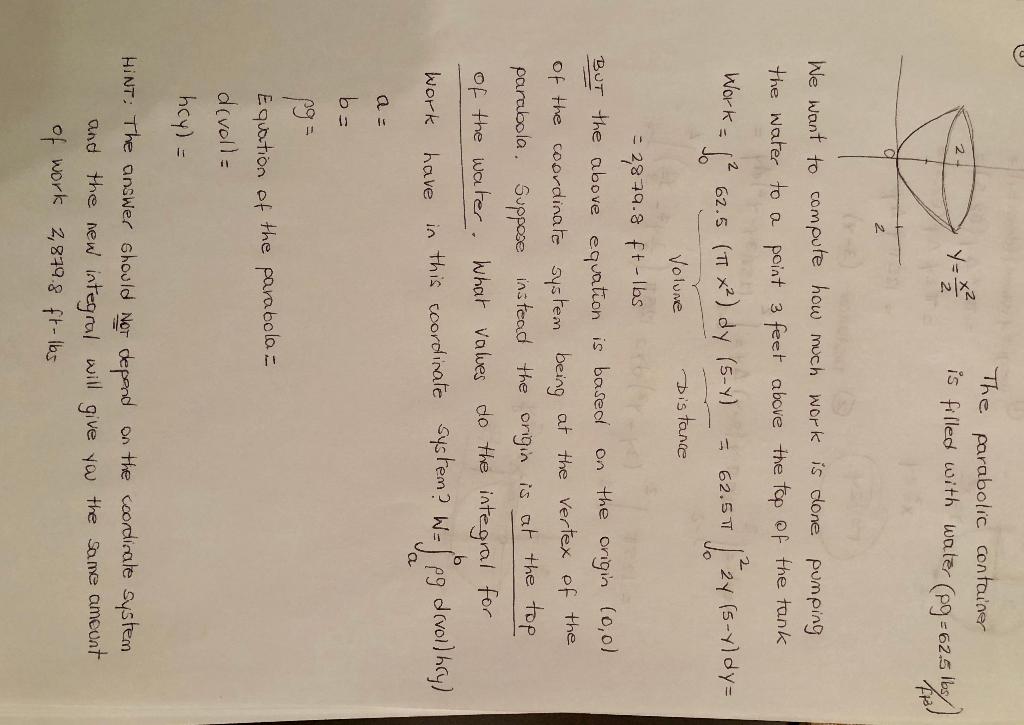 The parabolic container
y = x²/2 is filled with water (ρg = 62.5 lbs/ft³)
2
0
2
We want to compute how much work is done pumping
the water to a point 3 feet above the top of the tank
Work = ∫₀² 62.5 (π x²) dy (5-y) = 62.5π ∫₀² 2y (5-y) dy =
Volume Distance
= 2,879.8 ft-lbs
BUT the above equation is based on the origin (0,0)
of the coordinate system being at the vertex of the
parabola. Suppose instead the origin is at the top
of the water. What values do the integral for
work have in this coordinate system? W = ∫ₐᵇ ρg d(vol) h(y)
a =
b =
ρg =
Equation of the parabola =
d(vol) =
h(y) =
HINT: The answer should NOT depend on the coordinate system
and the new integral will give you the same amount
of work 2,879.8 ft-lbs